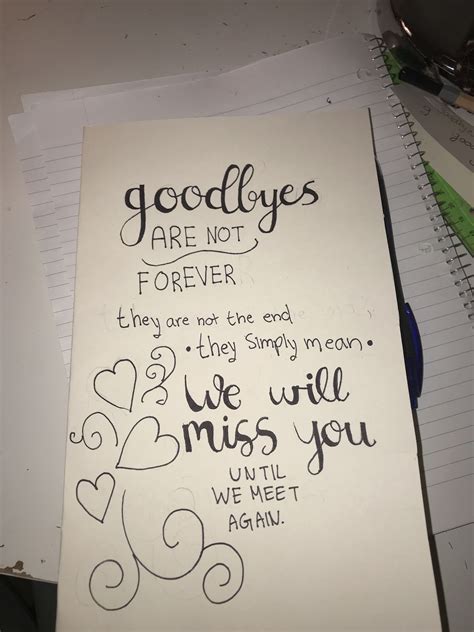 goodbyes
ARE NOT
FOREVER
they are not the end
• they Simply mean •
We will
miss you
UNTIL
WE MEET
AGAIN.